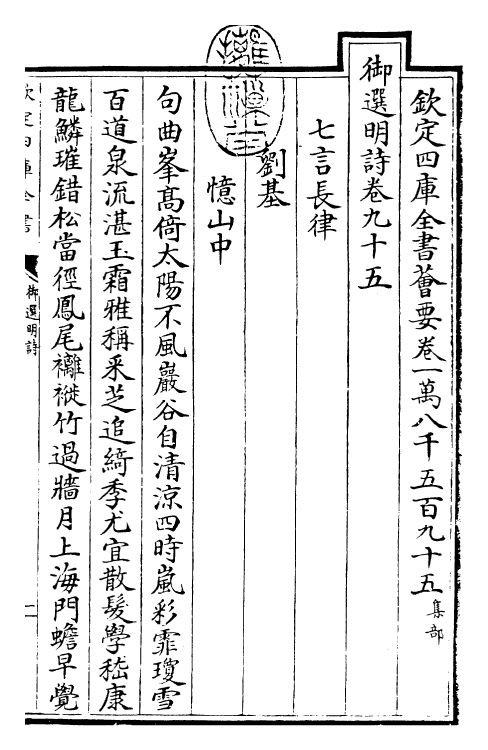 欽定四庫全書薈要卷一萬八千五百九十五集部
御選明詩卷九十五
七言長律
劉基
憶山中
句曲峯髙倚太陽不風巖谷自清涼四時嵐彩霏瓊雪
百道泉流湛玉霜雅稱采芝追綺季尤宜散髮學嵇康
龍鱗璀錯松當徑鳳尾襳褷竹過牆月上海門蟾早覺
欽定四庫全書
御選明詩
一